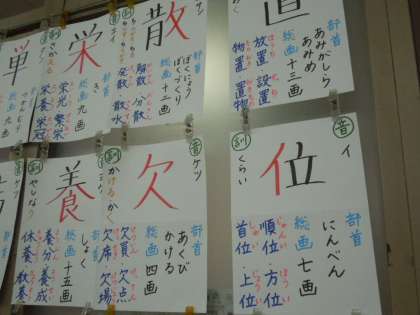 サン
散
部首
ぼくにょう
ぼくづくり
総画 十二画
解散 分散
発散 散水
置
部首
あみがしら
あみめ
総画 十三画
放置 設置
物置 置物
単
栄
訓
さかえる
総画 九画
栄光 繁栄
栄養 栄冠
音
イ
訓
くらい
位
部首
にんべん
総画 七画
順位 方位
首位 上位
音
ケツ
訓
かける かく
欠
部首
あくび
かける
総画 四画
欠員 欠点
欠席 欠場
訓
やしなう
養
部首
しょく
総画 十五画
養分 養成
休養 教養